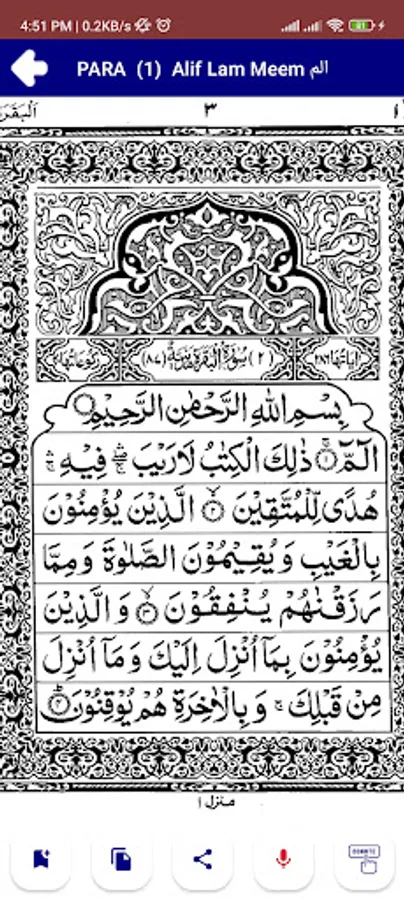 4:51 PM | 0.2KB/s
PARA (1) Alif Lam Meem الم
٣
اٰیَاتُهَا ٢٨٦ (٢) سُوْرَةُ الْبَقَرَةِ مَدَنِیَّةٌ (٨٧) رُكُوْعَاتُهَا
بِسْمِ اللهِ الرَّحْمٰنِ الرَّحِيْمِ
الٓمّٓ ۚ۝١ ذٰلِكَ الْكِتٰبُ لَا رَيْبَ ۛۖ فِيْهِ ۛ
هُدًى لِّلْمُتَّقِيْنَ ۙ۝٢ الَّذِيْنَ يُؤْمِنُوْنَ
بِالْغَيْبِ وَيُقِيْمُوْنَ الصَّلٰوةَ وَمِمَّا
رَزَقْنٰهُمْ يُنْفِقُوْنَ ۙ۝٣ وَالَّذِيْنَ
يُؤْمِنُوْنَ بِمَآ اُنْزِلَ اِلَيْكَ وَمَآ اُنْزِلَ
مِنْ قَبْلِكَ ۚ وَبِالْاٰخِرَةِ هُمْ يُوْقِنُوْنَ ۙ۝٤
منزل ١
DONATE